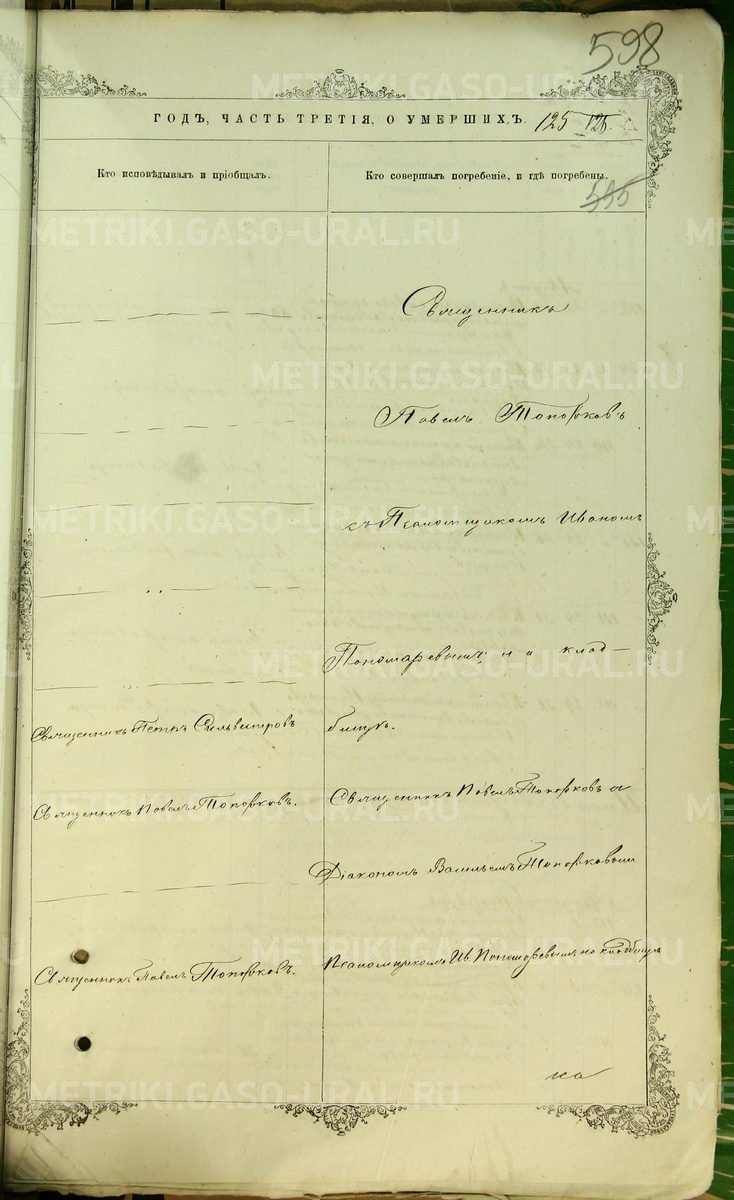 598
ГОДЪ, ЧАСТЬ ТРЕТІЯ, О УМЕРШИХЪ. 125
Кто исповѣдывалъ и пріобщалъ.
Кто совершалъ погребеніе, и гдѣ погребены.
METRIKI.GASO-URAL.RU
Священникъ
Павелъ Топорковъ
съ Псаломщикомъ Иваномъ
Пономаревымъ на клад-
бищѣ.
Священникъ Петръ Сильвестровъ
Священникъ Павелъ Топорковъ.
Священникъ Павелъ Топорковъ с
Діакономъ Васильемъ Топорковымъ
Священникъ Павелъ Топорковъ.
Псаломщикомъ Ив. Пономаревымъ на кладбищѣ